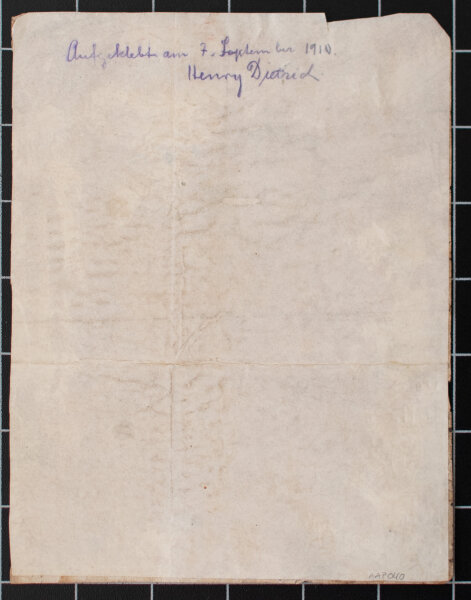 Aufgeklebt am 7. September 1910.
Henry Dietrich
AAP040